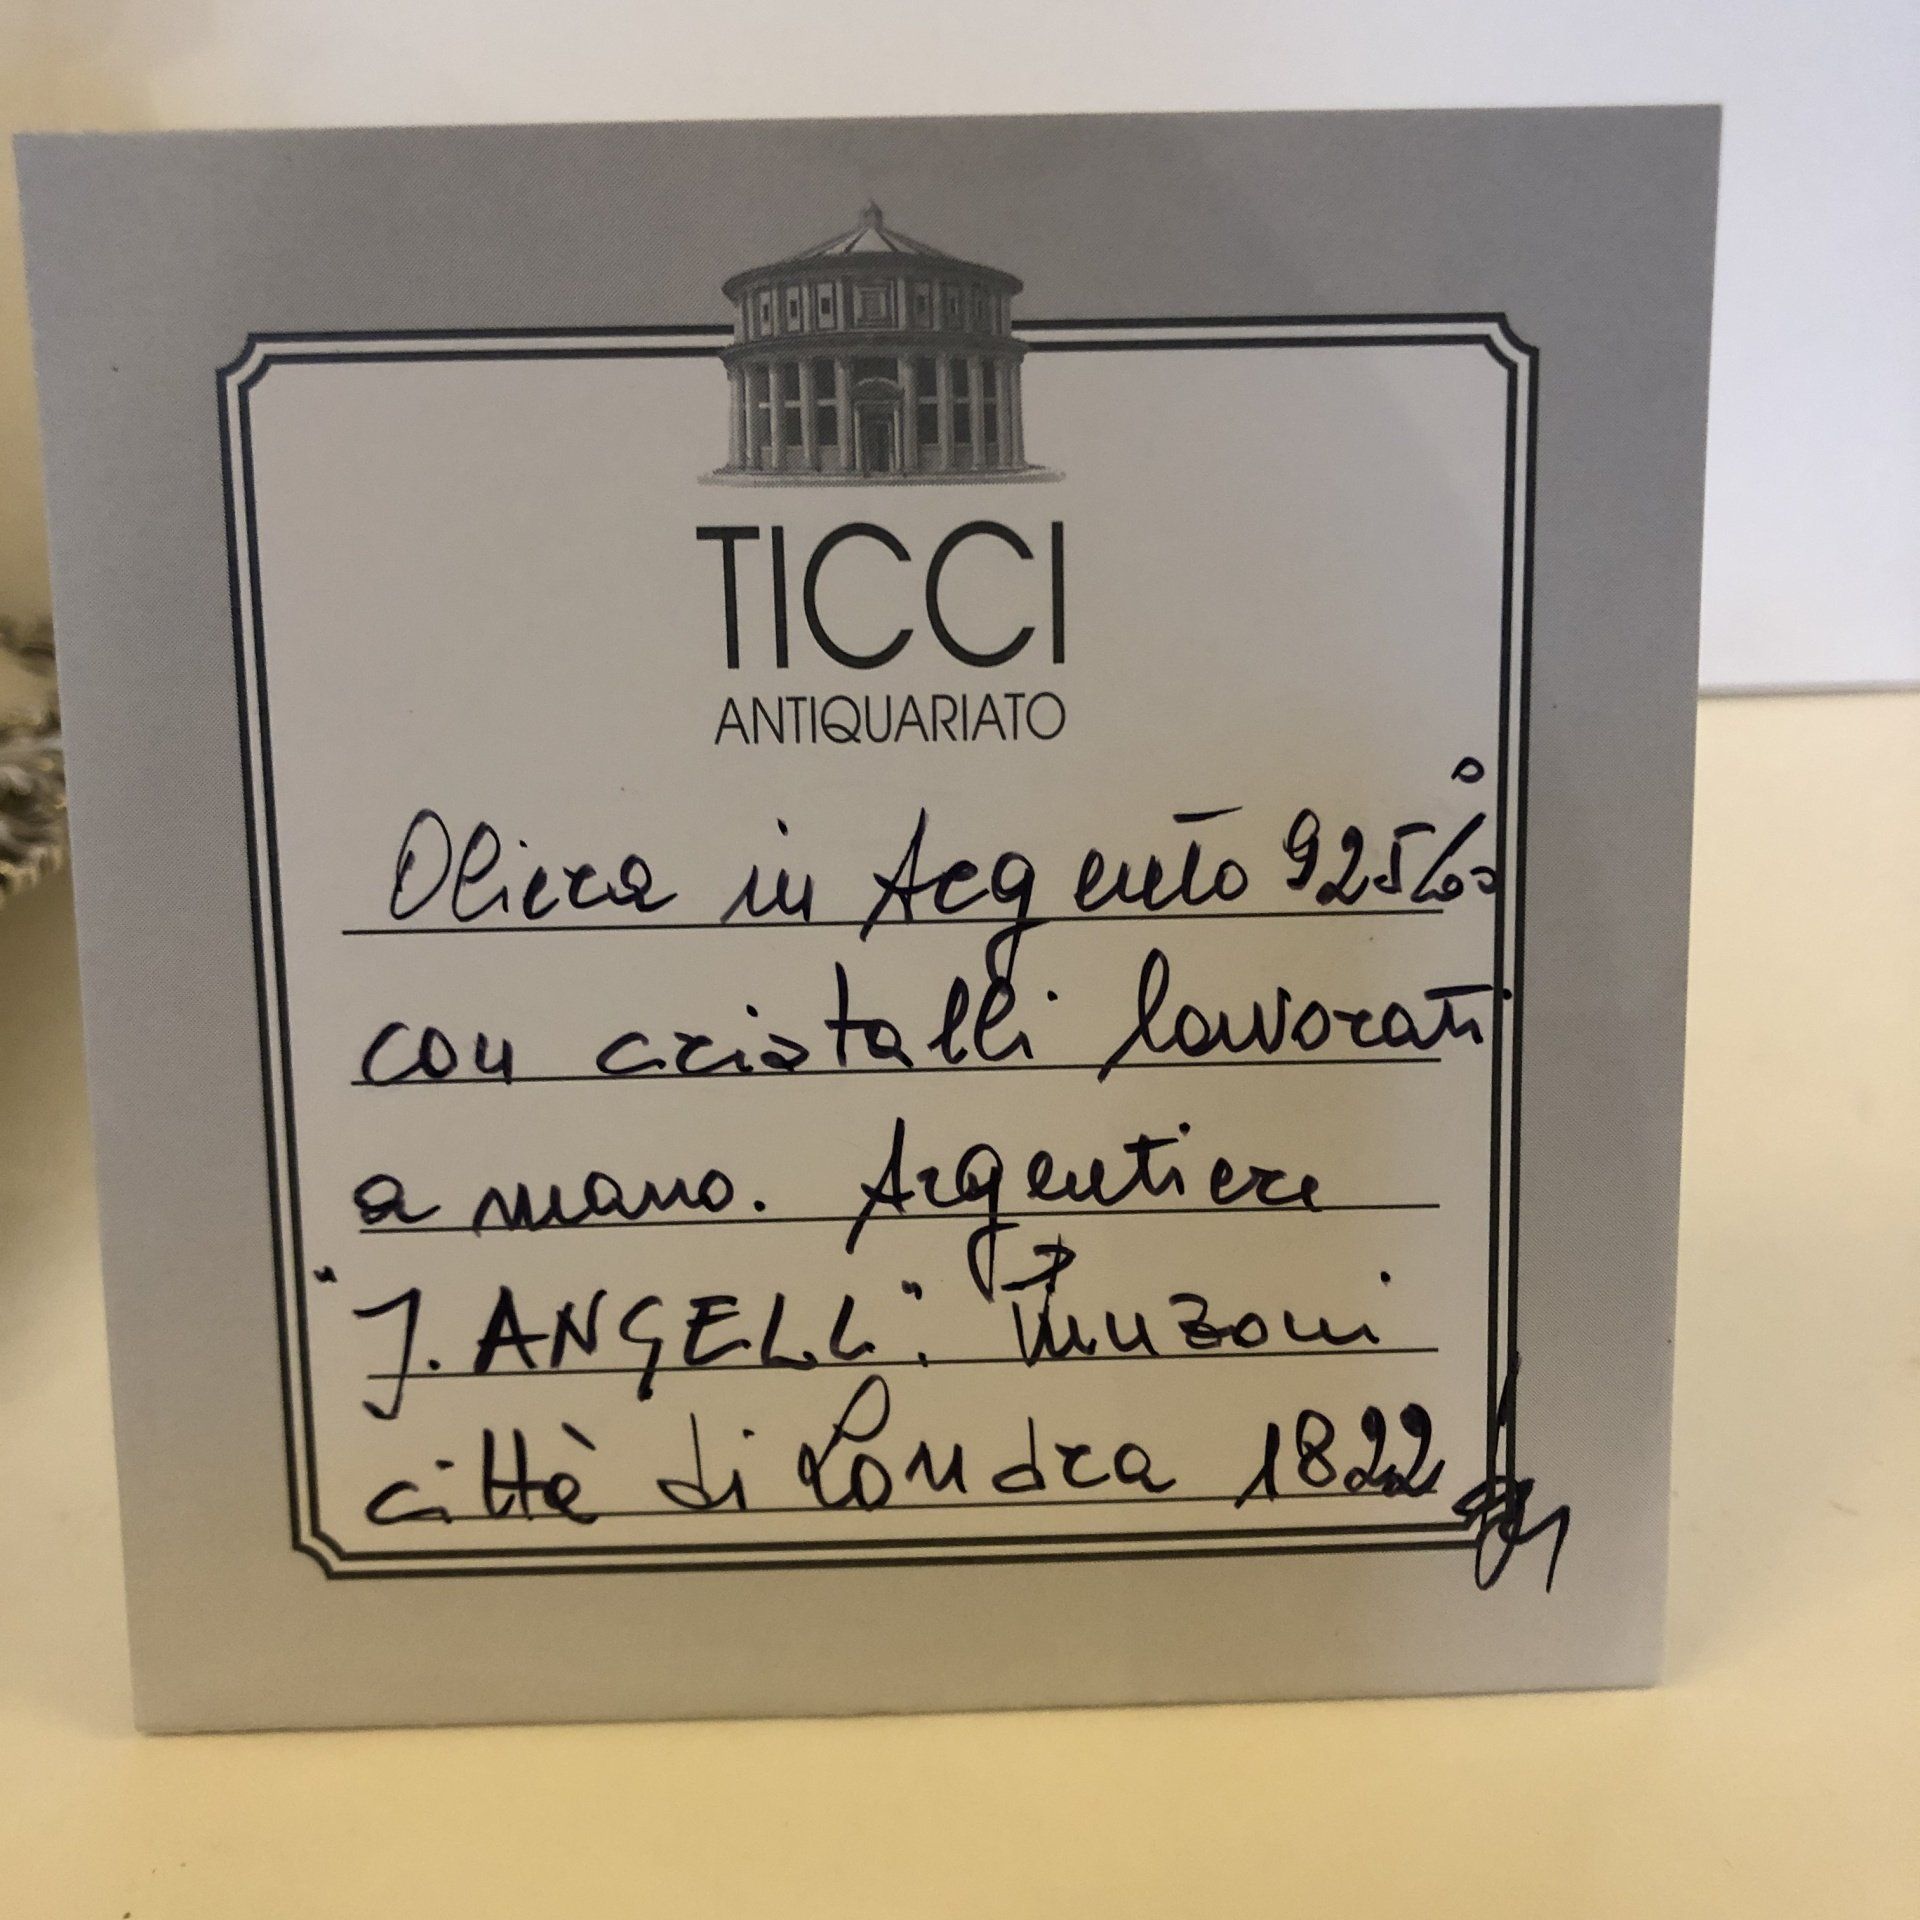 TICCI
ANTIQUARIATO
Oliera in Argento 925‰
con cristalli lavorati
a mano. Argentiere
"J. ANGELL". Punzoni
città di Londra 1822